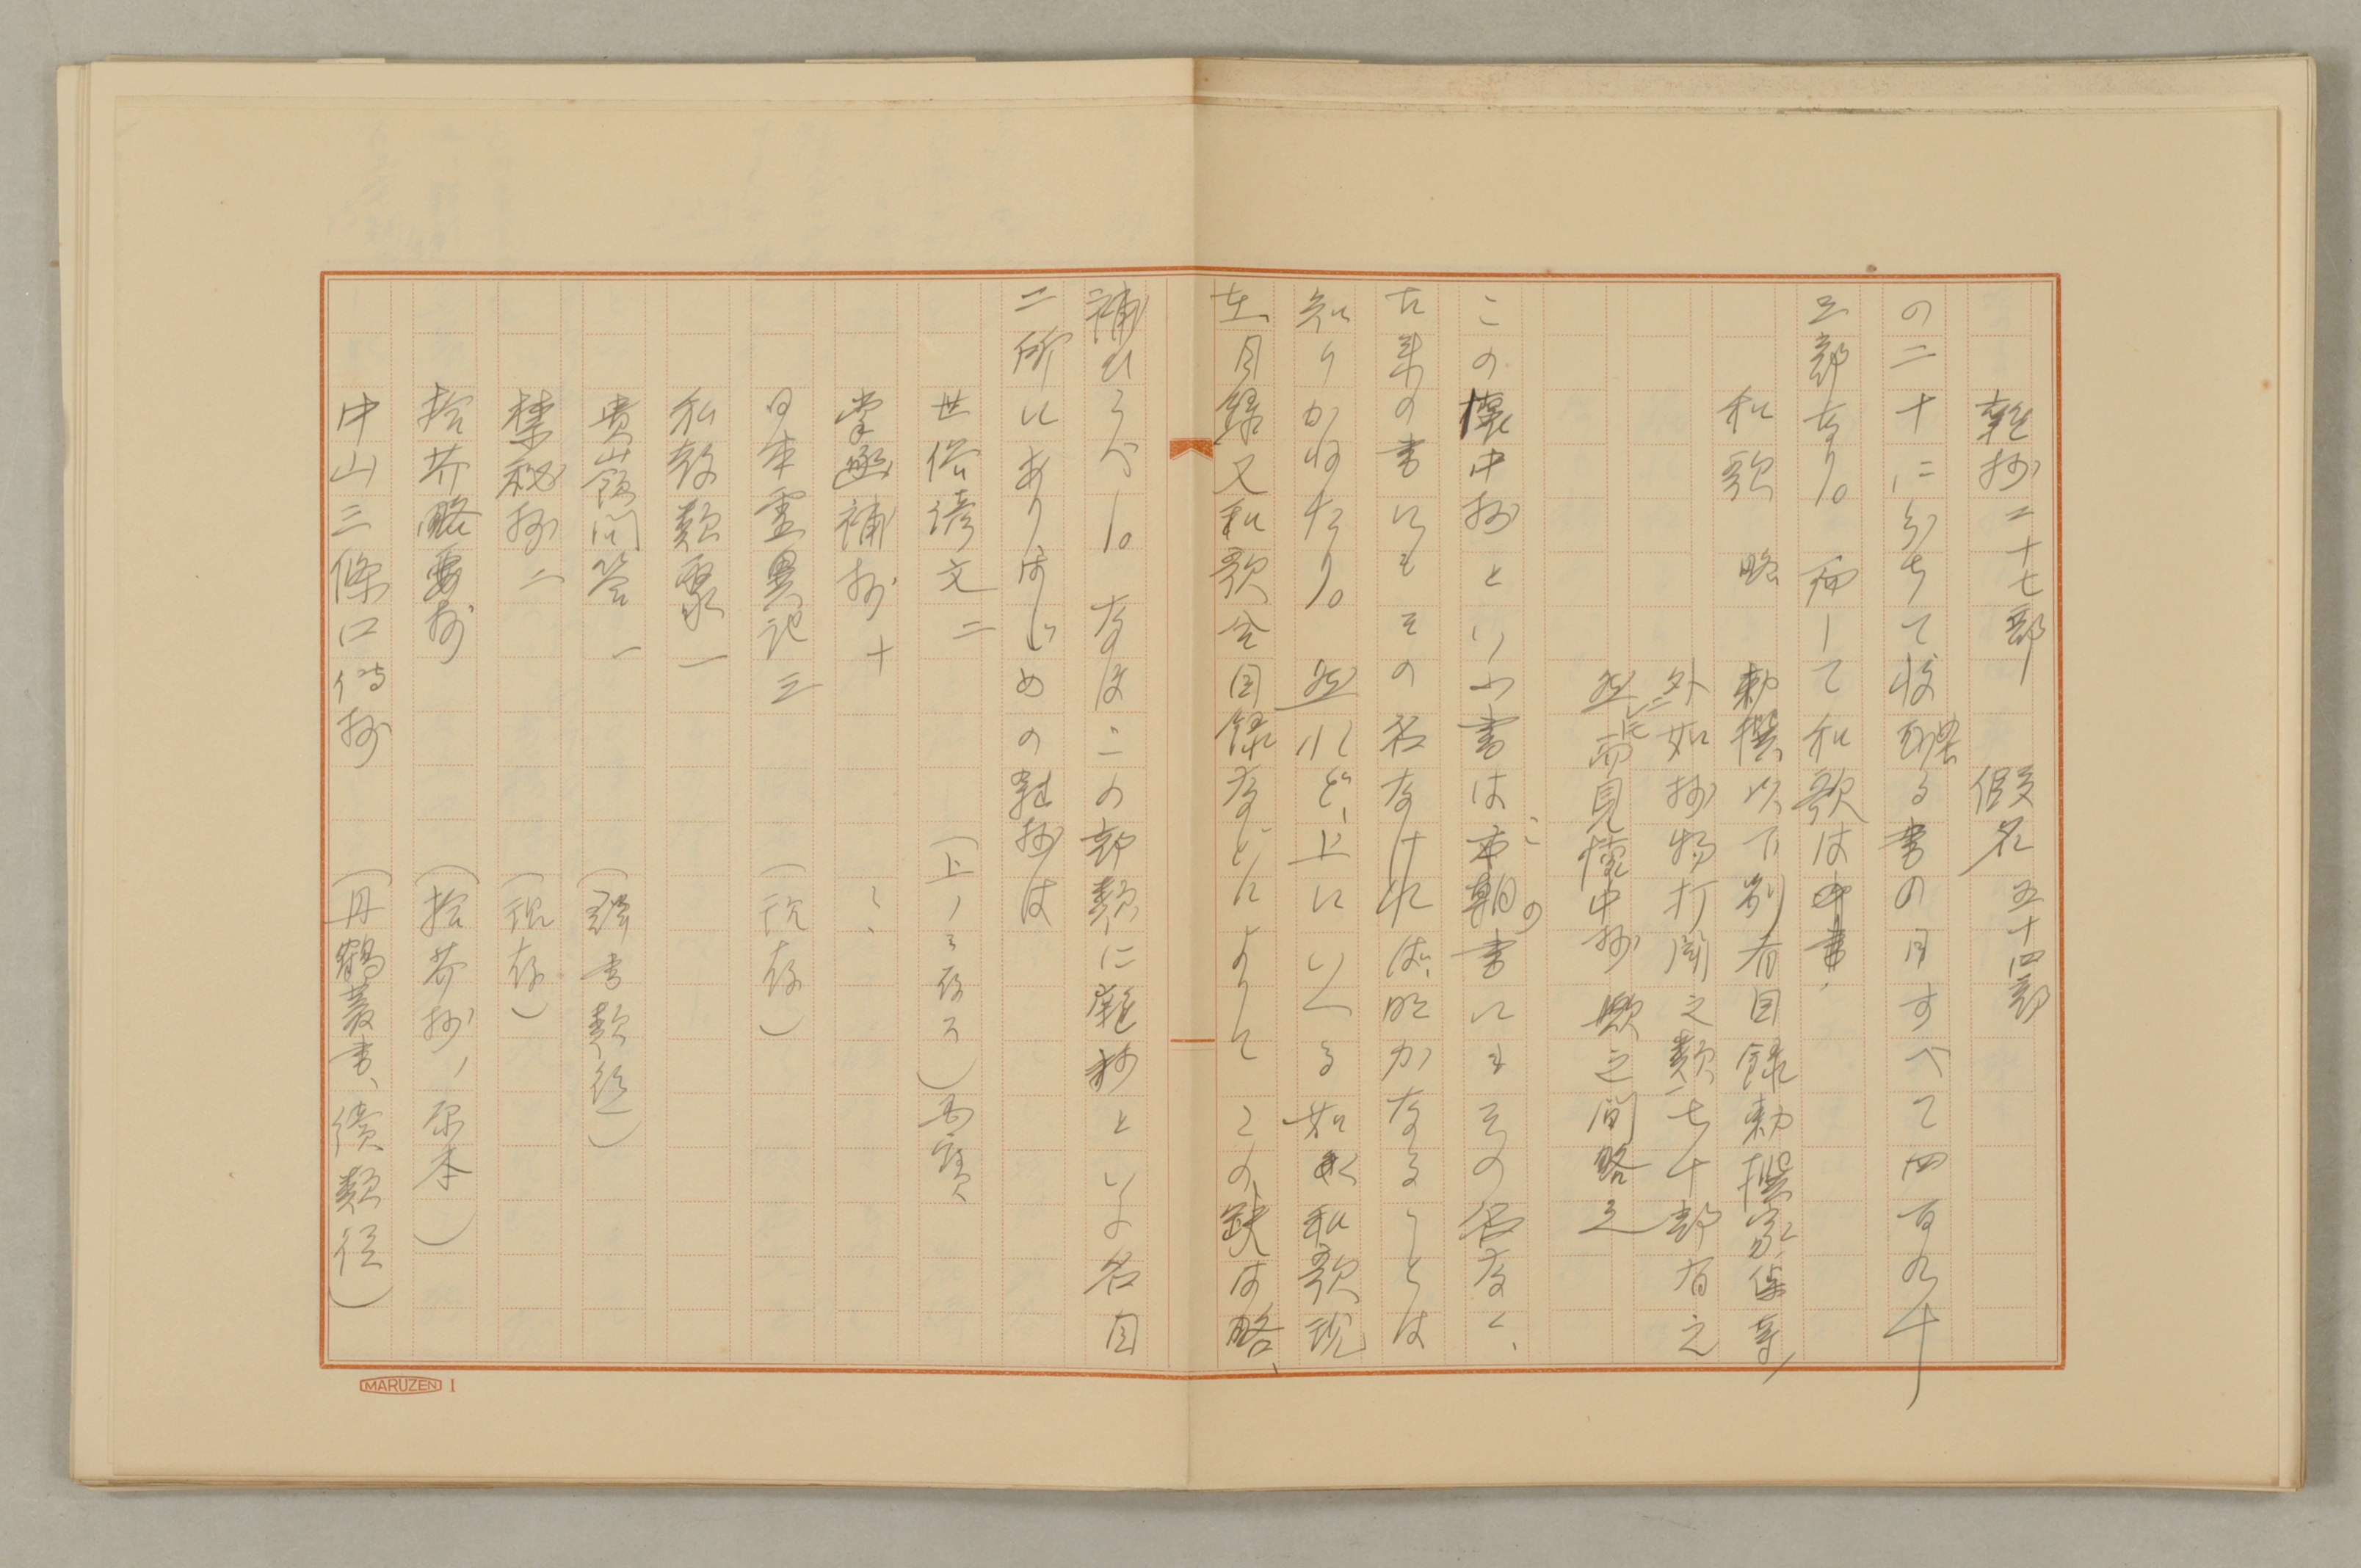 雜抄二十七部 假名五十四部
の二十に分ちて收載る書の目すべて四百九十
三部なり。而して和歌は
和歌 略 勅撰以下別有目録勅撰家集等
外如抄物打聞之類七十部有之
然而見懐中抄歟之間略之
この懐中抄といふ書はこの書にもその名なく、
古来の書にもその名なければ、明かなることは
知りかねたり。然れど、上にいへる如く和歌現
在目録又和歌合目録などによりてこの缺は略、
補ひうべし。なほこの部類に雜抄といふ名目
二所にありはじめの雜抄は
世俗諺文二 (上ノミ存ス)
掌函補抄十
日本霊異記三 (現存)
私教類聚一
貴嶺問答一 (群書類従)
禁秘抄二 (現存)
拾芥略要抄 (拾芥抄ノ原本)
中山三條口傳抄 (丹鶴叢書、續類従)
MARUZEN 1